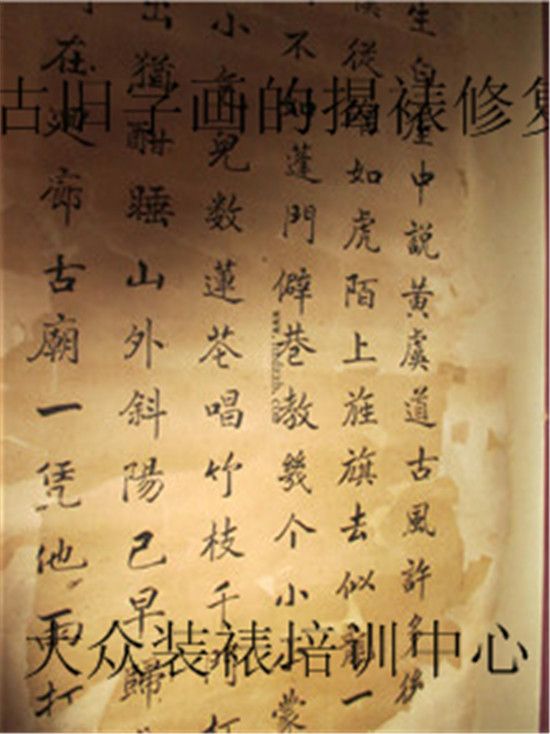 古旧字画的揭裱修复
生白屋中說黃虞道古風許多後
從如虎陌上旌旗去似龍一
不如蓬門僻巷教幾个小小蒙
小兒數蓮花唱竹枝千門打
出猶酣睡山外斜陽已早歸
在迴廊古廟一凭他雨打
大众装裱培训中心